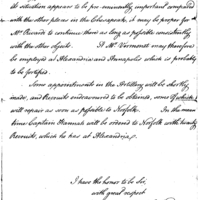 its situation appears to be pre-eminently important compared
with the other places on the Chesapeake, it may be proper for
Mr Rivardi to continue there as long as possible consistently
with the other objects. If Mr Vermonnet may therefore
be employed at Alexandria and Annapolis which is probably
to be fortified.
Some appointments in the Artillery will be shortly
made, and Recruits endeavoured to be obtained, some of which
will repair as soon as possible to Norfolk. In the mean
time Captain Hannah will be ordered to Norfolk with twenty
Recruits, which he has at Alexandria.
I have the honor to be Sir,
with great respect